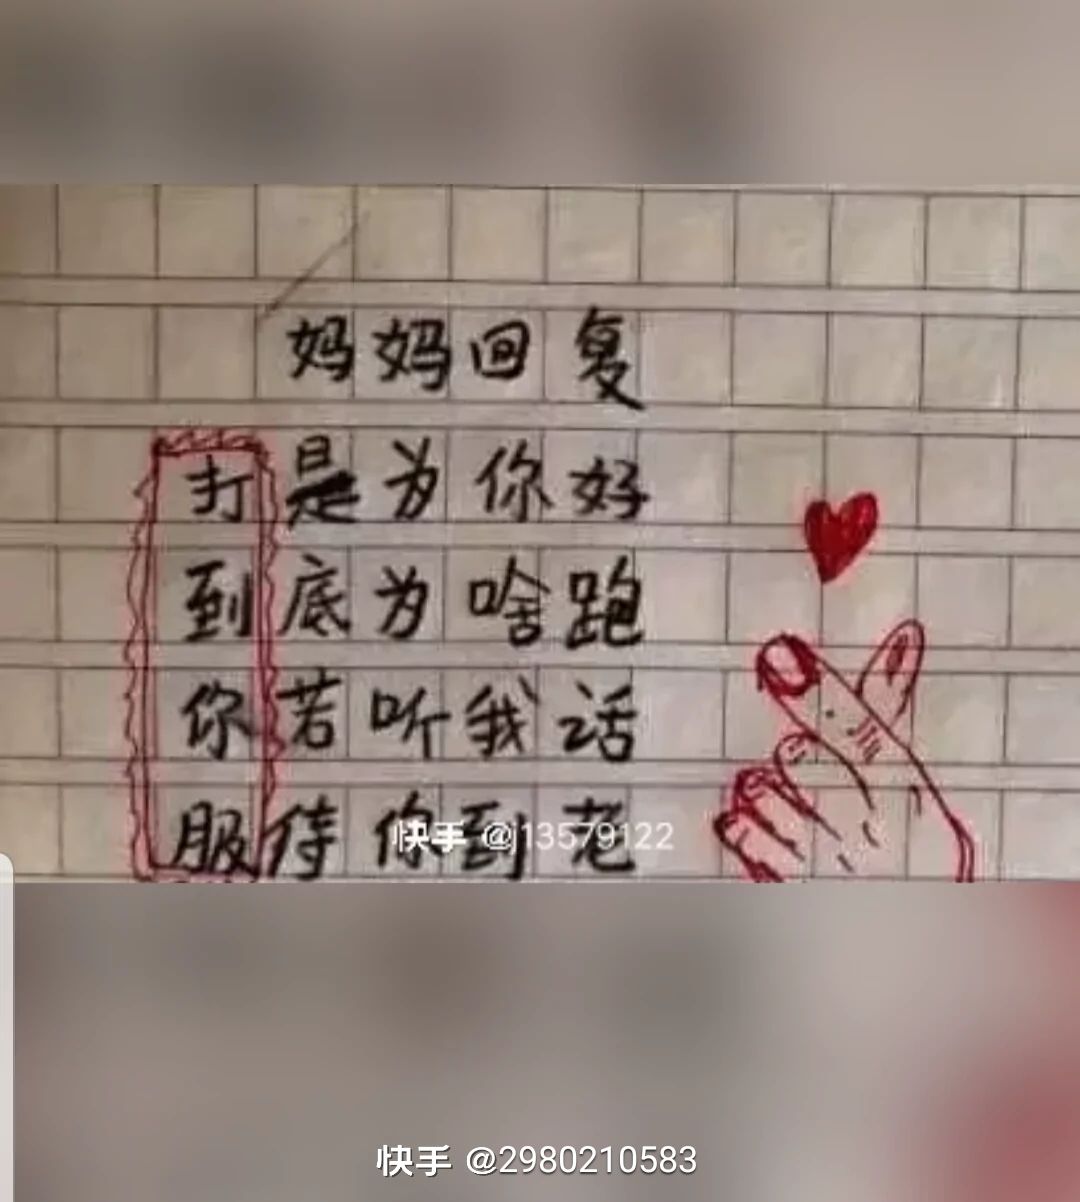 妈妈回复
打是为你好
到底为啥跑
你若听我话
服侍你到老
快手 @j13579122
快手 @2980210583